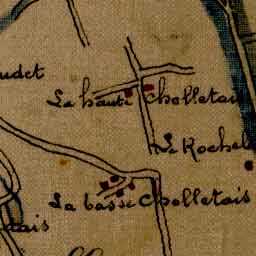 udet
La haute Cholletais
Le Rochel
La basse Cholletais
ais